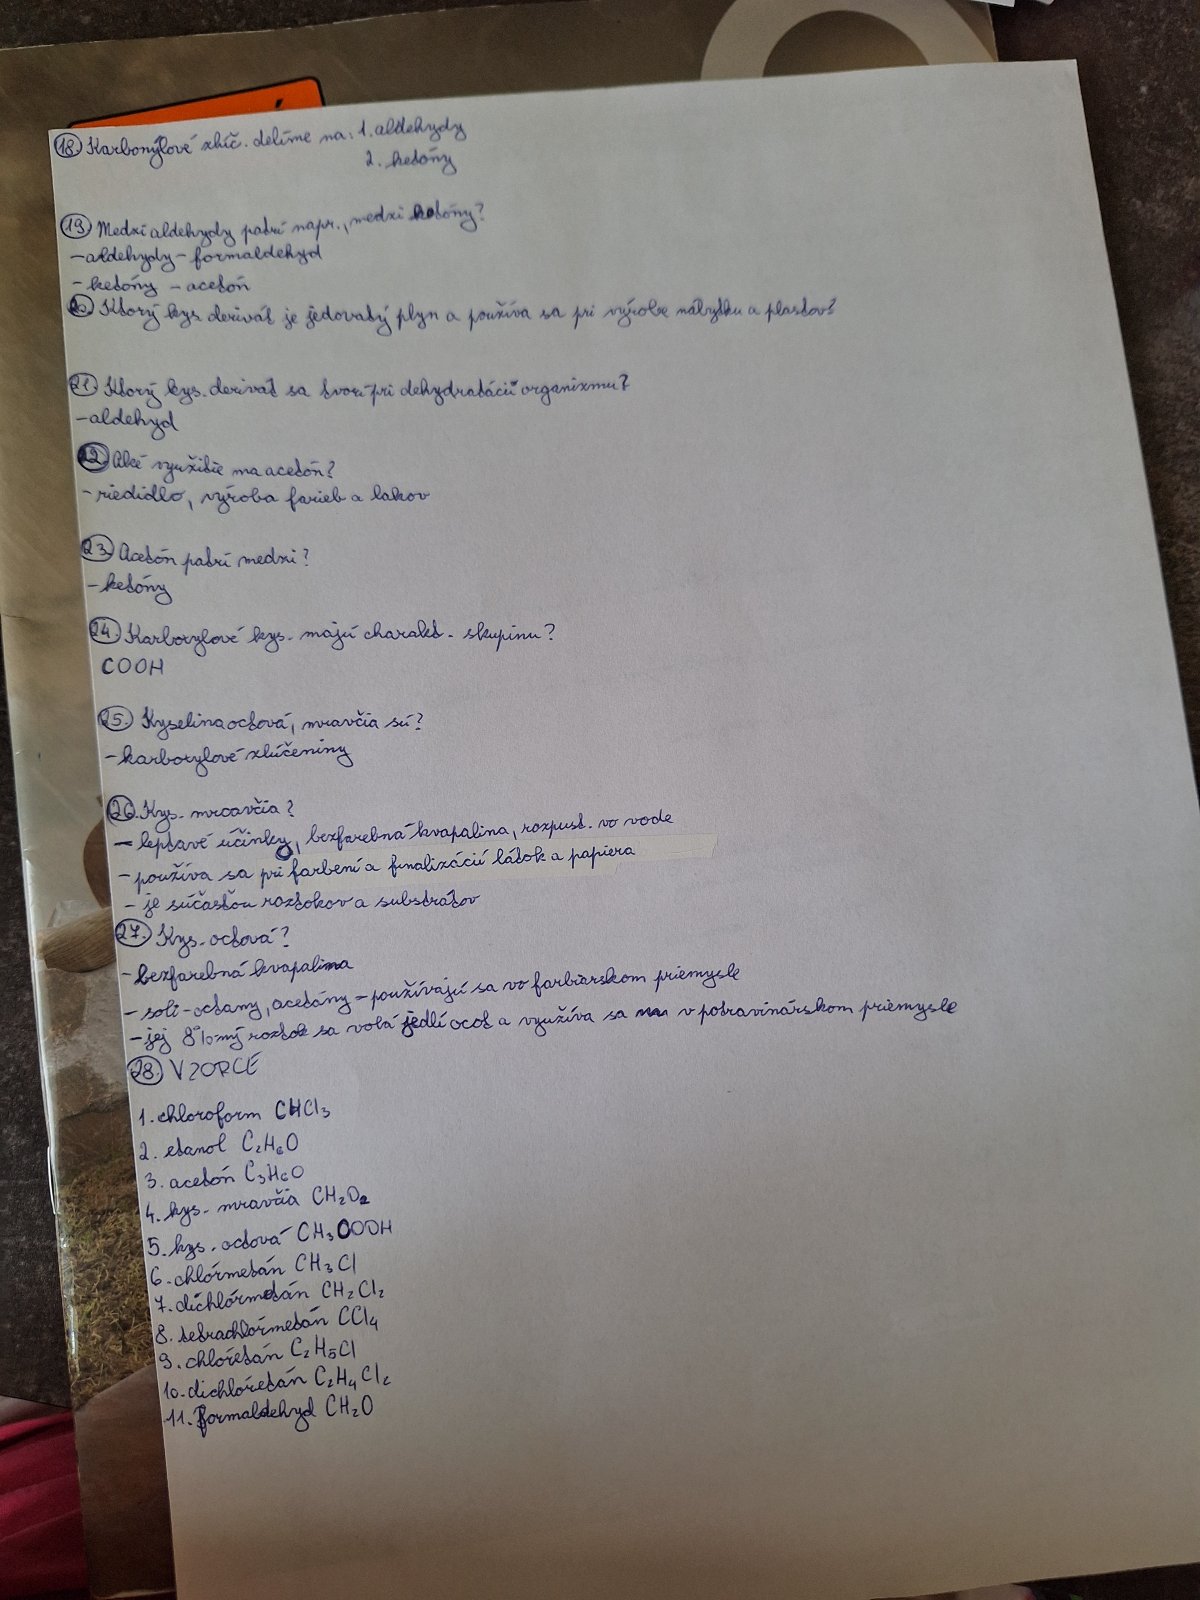 18. Karbonylové zlúč. delíme na: 1. aldehydy
2. ketóny
19. Medzi aldehydy patrí napr., medzi ketóny?
- aldehydy - formaldehyd
- ketóny - acetón
20. Ktorý kys. derivát je jedovatý plyn a používa sa pri výrobe nábytku a plastov?
21. Ktorý kys. derivát sa tvorí pri dehydratácií organizmu?
- aldehyd
22. Aké využitie ma acetón?
- riedidlo, výroba farieb a lakov
23. Acetón patrí medzi?
- ketóny
24. Karboxylové kys. majú charakt. skupinu?
COOH
25. Kyselina octová, mravčia sú?
- karboxylové zlúčeniny
26. Kys. mravčia?
- leptavé účinky, bezfarebná kvapalina, rozpust. vo vode
- používa sa pri farbení a finalizácií látok a papiera
- je súčasťou roztokov a substrátov
27. Kys. octová?
- bezfarebná kvapalina
- soli - octany, acetány - používajú sa vo farbiarskom priemysle
- jej 8%ný roztok sa volá jedlí ocot a využíva sa v potravinárskom priemysle
28. VZORCE
1. chloroform CHCl3
2. etanol C2H6O
3. acetón C3H6O
4. kys. mravčia CH2O2
5. kys. octová CH3OOOH
6. chlórmetán CH3Cl
7. dichlórmetán CH2Cl2
8. tetrachlórmetán CCl4
9. chlóretán C2H5Cl
10. dichlóretán C2H4Cl2
11. formaldehyd CH2O